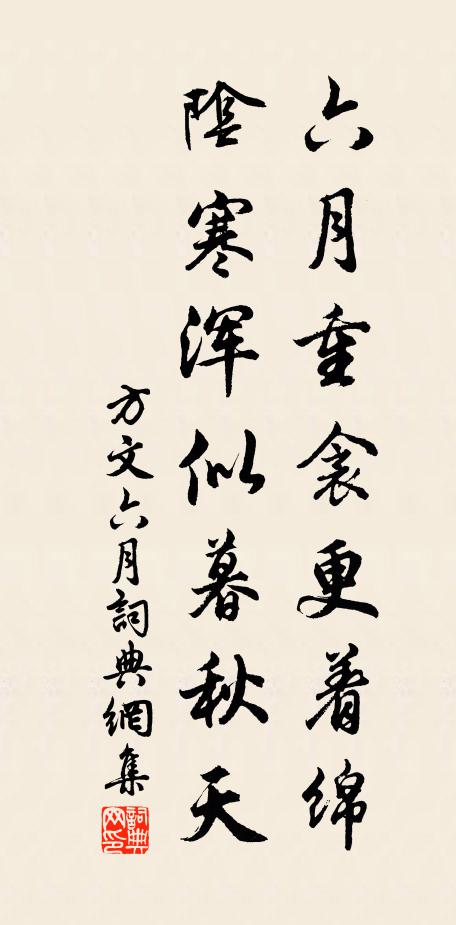 六月重衾更着绵
陰寒浑似暮秋天
方文六月詞典網集
詞典
网印